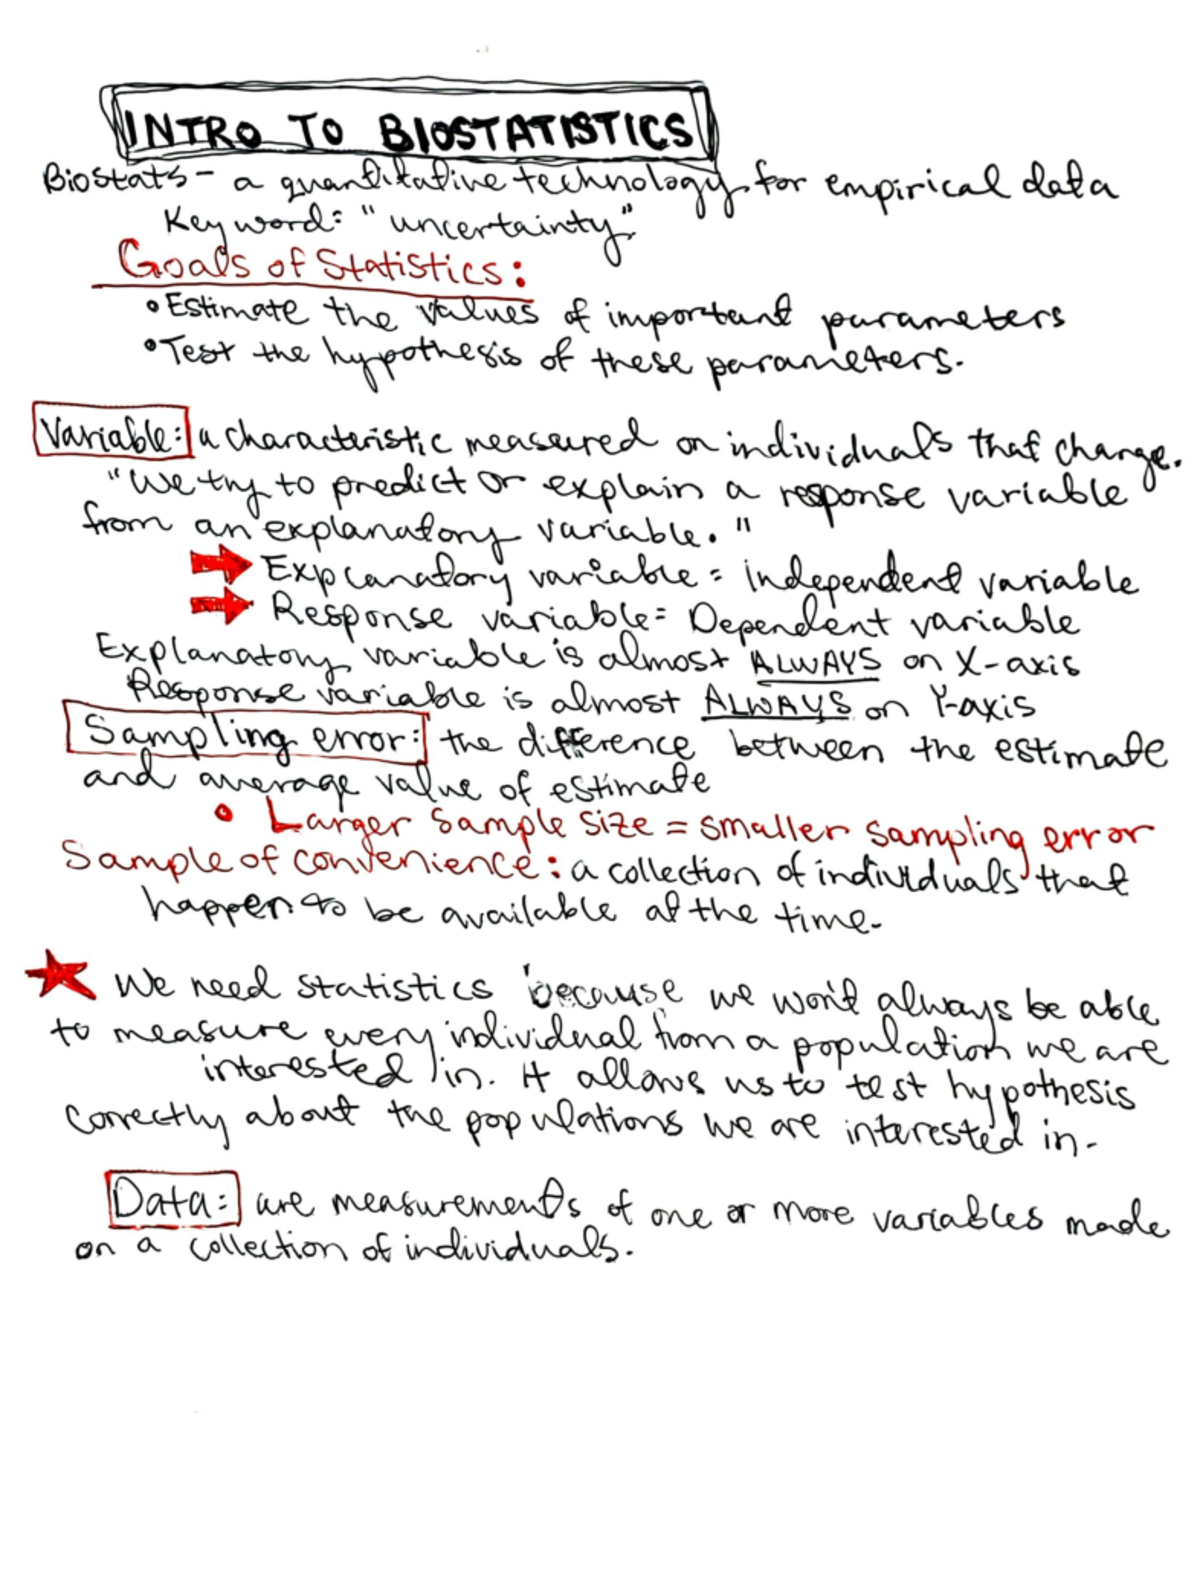 INTRO TO BIOSTATISTICS
Biostats- a quantitative technology for empirical data
Key word: "uncertainty"
Goals of Statistics:
• Estimate the values of important parameters
• Test the hypothesis of these parameters.
Variable: a characteristic measured on individuals that change.
"We try to predict or explain a response variable
from an explanatory variable."
Explanatory variable = independent variable
Response variable = Dependent variable
Explanatory variable is almost ALWAYS on X-axis
Response variable is almost ALWAYS on Y-axis
Sampling error: the difference between the estimate
and average value of estimate
• Larger sample size = smaller sampling error
Sample of convenience: a collection of individuals that
happen to be available at the time.
We need statistics because we won't always be able
to measure every individual from a population we are
interested in. It allows us to test hypothesis
correctly about the populations we are interested in.
Data: are measurements of one or more variables made
on a collection of individuals.